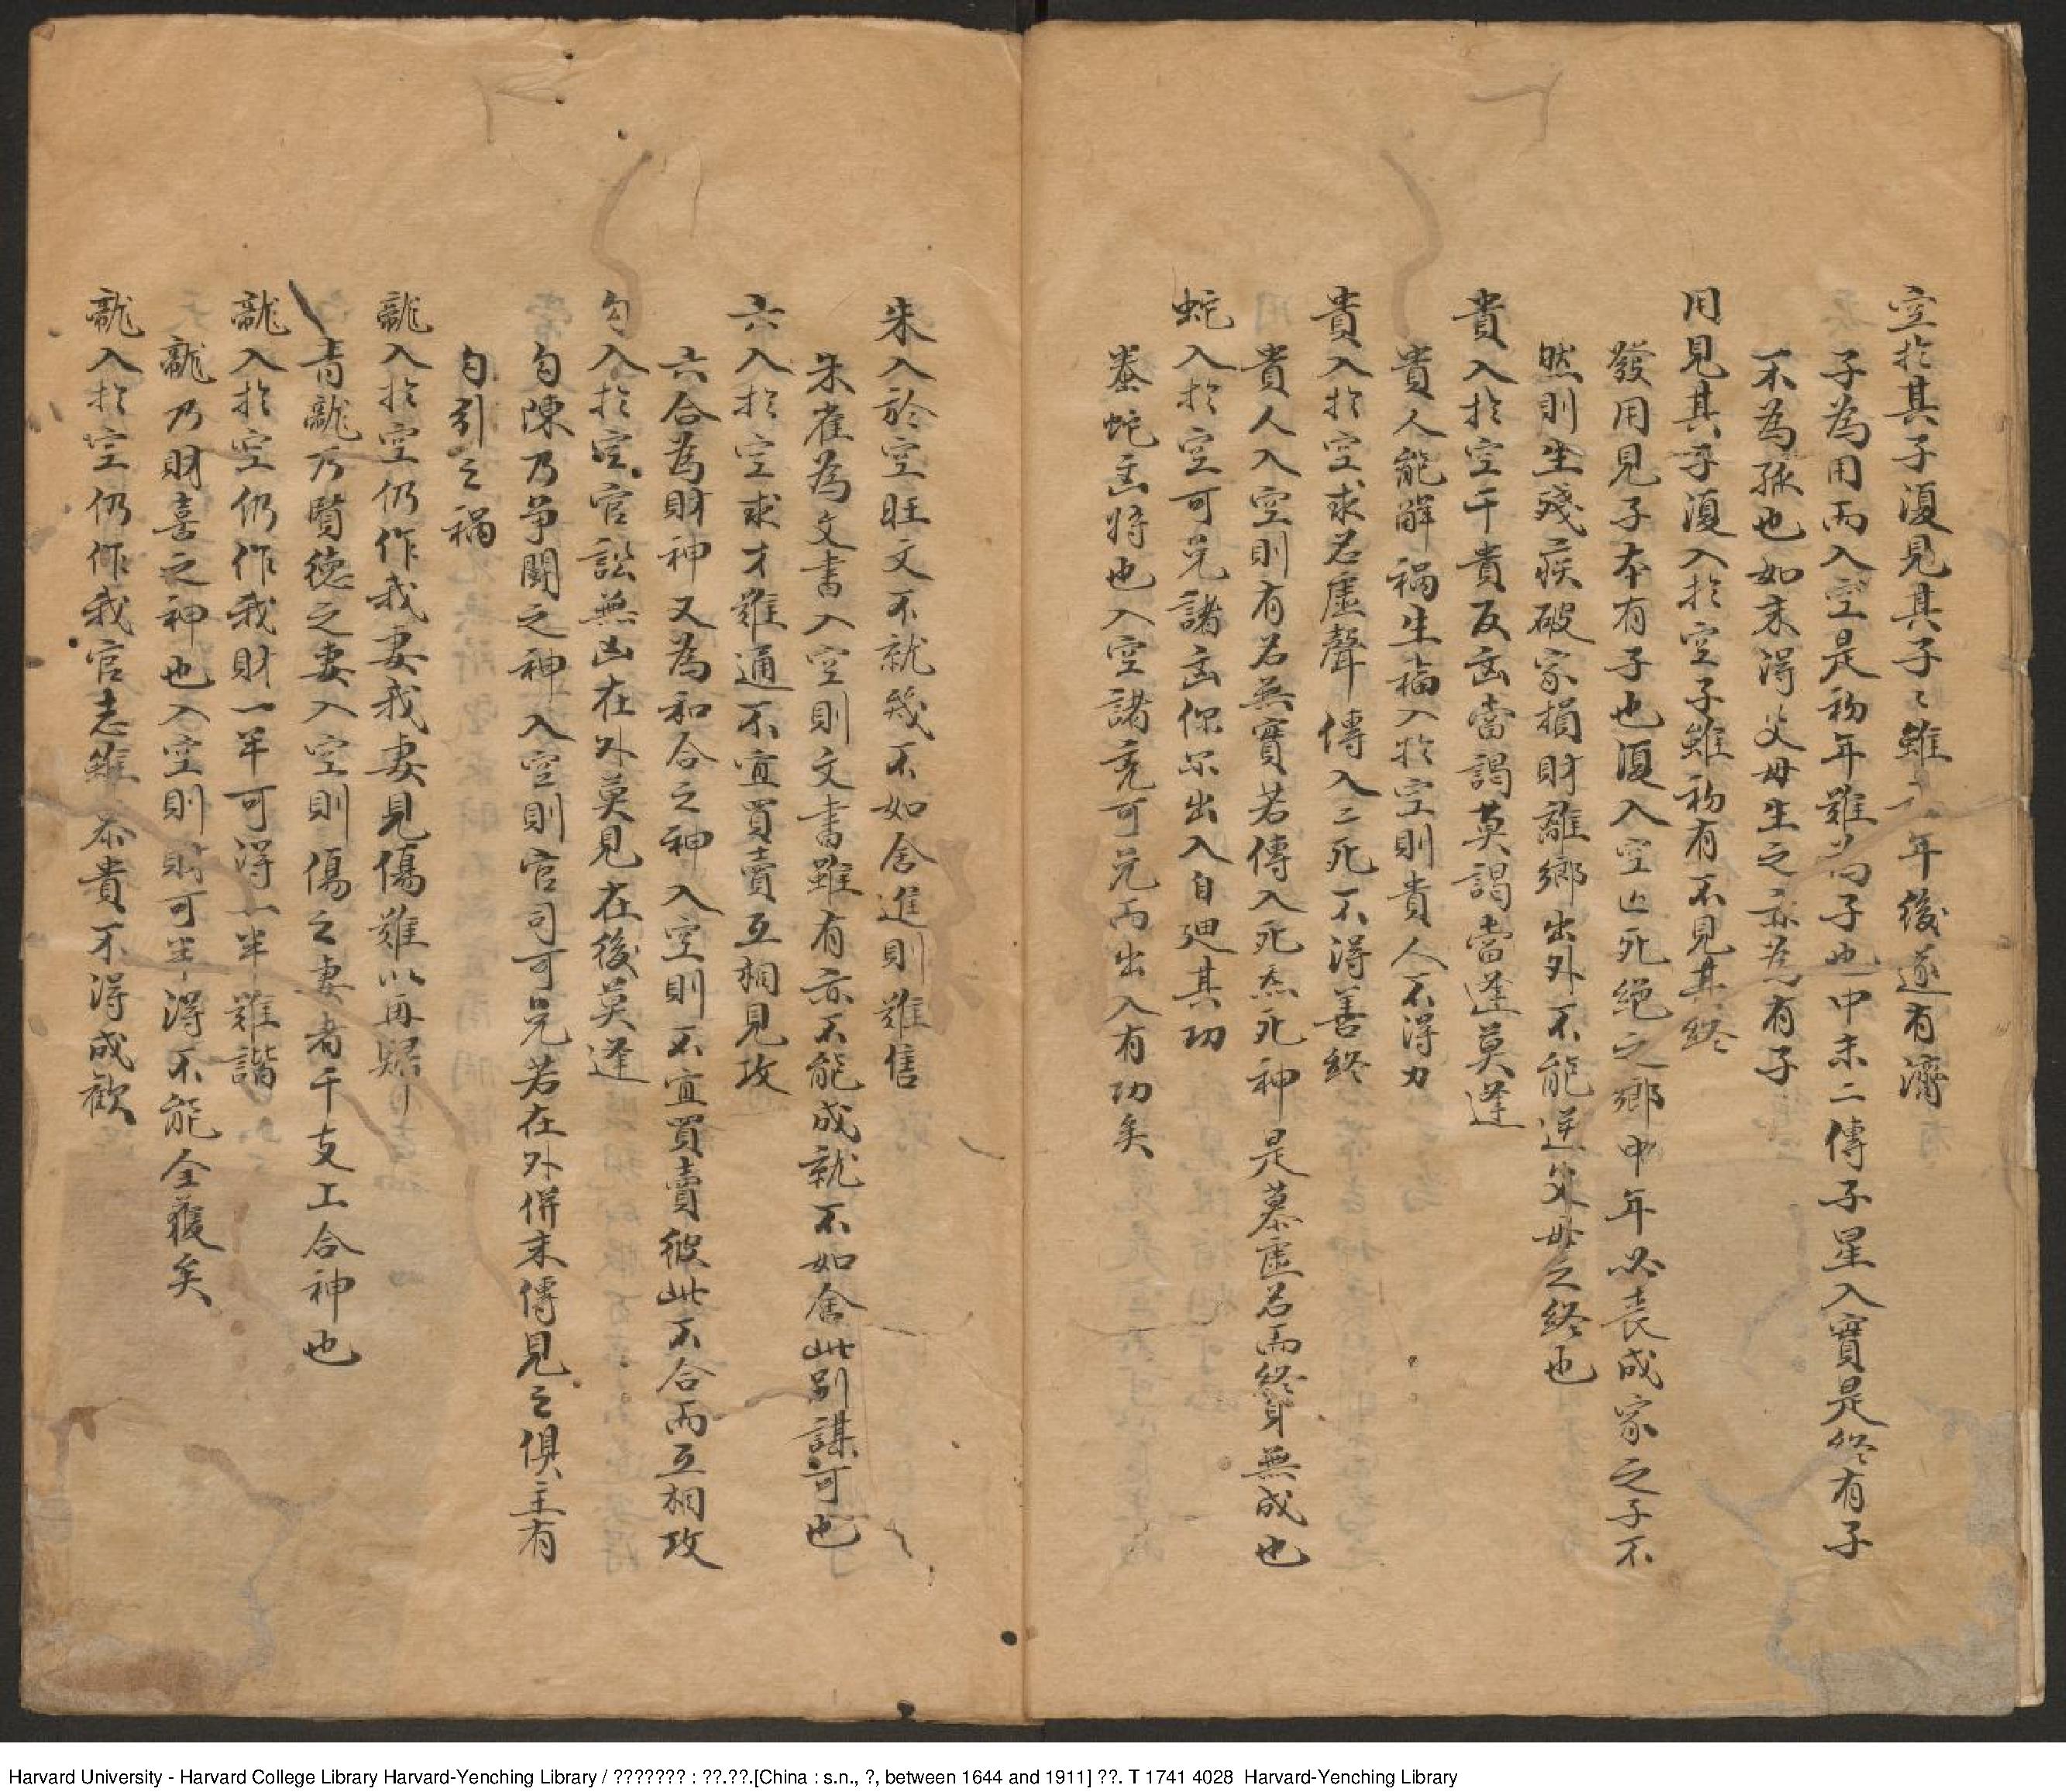 空於其子復見其子〻雖年後遂有濟
子為用而入空是初年難為子也中末二傳子星入實是終有子
不為孤也如末得父母生之亦為有子
用見其子復入於空子雖初有不見其終
發用見子本有子也復入空亡死絕之鄉中年必喪成家之子不
然則生殘疾破家損財離鄉出外不能送父母之終也
貴入於空干貴反凶當謁莫謁當逢莫逢
貴人能解禍生福入於空則貴人不得力
貴入於空求名虛聲傳入三死不得善終
貴人入空則有名無實若傳入死炁死神是慕虛名而終身無成也
蛇入於空可免諸凶你不出入自廻其功
螣蛇凶将也入空諸凶可免而出入有功矣
朱入於空旺文不就幾不如舍進則難售
朱雀為文書入空則文書雖有亦不能成就不如舍此別謀可也
六入於空求才難通不宜買賣互相見攻
六合為財神又為和合之神入空則不宜買賣彼此不合而互相攻
勾入於空官訟無凶在外莫見在後莫逢
勾陳乃爭鬪之神入空則官司可免若在外併末傳見之俱主有
勾引之禍
龍入於空仍作我妻我妻見傷難以再歸
青龍乃賢德之妻入空則傷之妻者干支上合神也
龍入於空仍作我財一半可得一半難諧
龍乃財喜之神也入空則財可半得不能全獲矣
龍入於空仍作我官志雖恭貴不得成歡